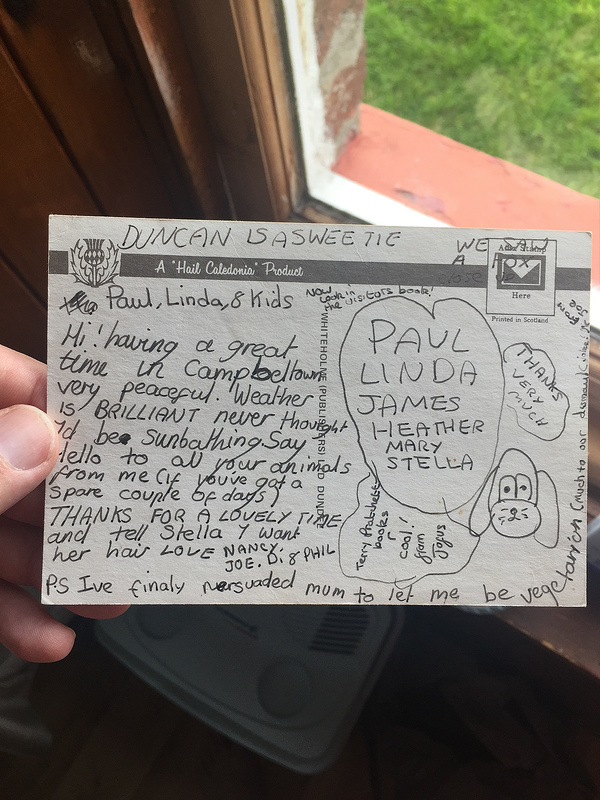 DUNCAN IS A SWEETIE
WE SAW
A FOX
CLOSE UP
A "Hail Caledonia" Product
Affix Stamp
Here
Printed in Scotland
Paul, Linda, & Kids
Now look in
the visitors book!
Hi! having a great
time in Campbeltown
very peaceful. Weather
is BRILLIANT never thought
I'd be Sunbathing. Say
Hello to all your animals
from me (if you've got a
Spare couple of days)
THANKS FOR A LOVELY TIME
and tell Stella I want
her hair LOVE NANCY,
JOE. Di & PHIL
WHITEHOLME (PUBLISHERS) LTD DUNDEE
PAUL
LINDA
JAMES
HEATHER
MARY
STELLA
THANKS
VERY
MUCH
Terry Pratchett
books
r
cool!
from
PS Ive finaly persuaded mum to let me be vegetarian (Much to our
from
Joe